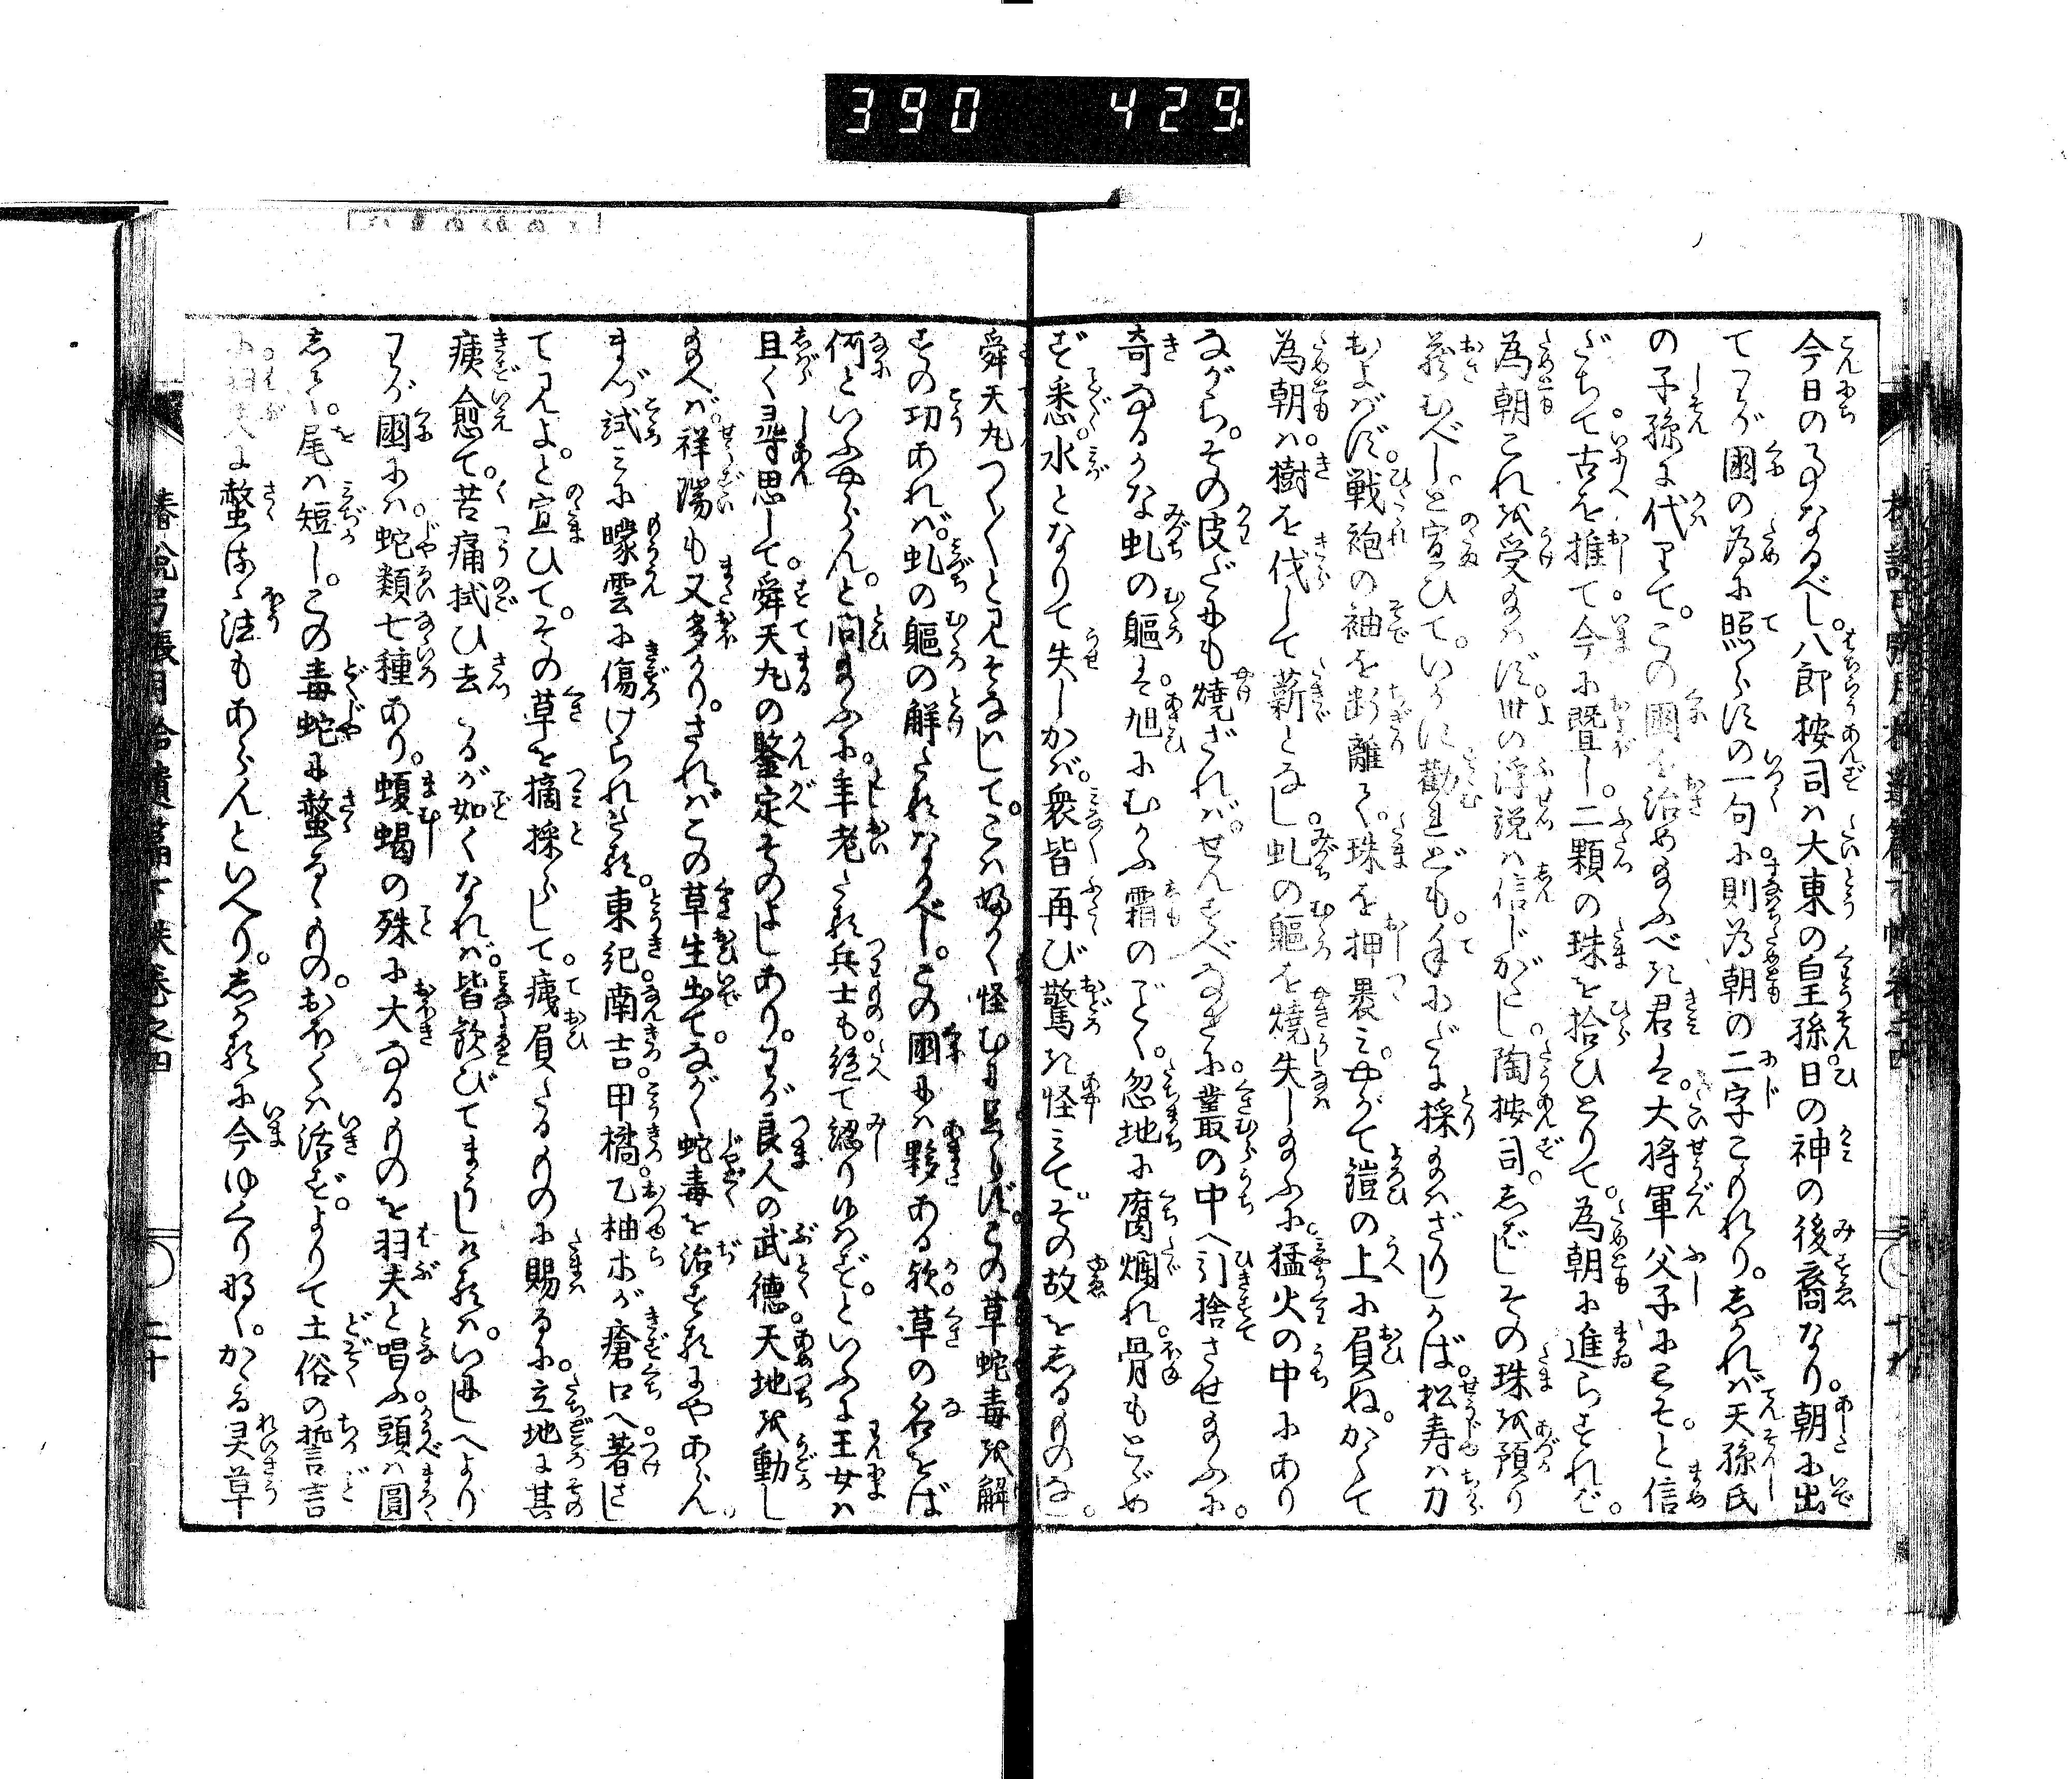 390 429
今日の事なるべし。八郎按司は大東の皇孫。日の神の後裔なり。朝に出
てわが國の為に照らすの一句に則為朝の二字こもれり。しかれば天孫氏
の子孫に代りて。この國を治め給ふべき君は。大將軍父子にこそと信
だちて古を推て今に曁し。二顆の珠を拾ひとりて。為朝に進らすれば。
為朝これを受給はず世の浮説は信じがたし。陶按司しばしその珠を預り
藏むべしと宣ひて。いかに勸れども。手にだに採給はざりしかば。松寿は力
およばず。戰袍の袖を断離て。珠を押裹み。やがて鎧の上に負ね。かくて
為朝は。樹を伐して薪となし。虬の軀を燒失し給ふに。猛火の中にあり
ながら。その皮だにも燒ざれば。せんすべなさに。叢の中へ引捨させ給ふに。
奇なるかな虬の軀は。旭にむかふ霜のごとく。忽地に腐爛れ。骨もとゞめ
ず悉。水となりて失しかば。衆皆再び驚き怪みて。その故をしるものなし。
舜天丸つく〳〵と見そなはして。こは好く怪むに足らず。この草蛇毒を解
すの功あれば。虬の軀の解たるなるべし。この國には夥ある欤。草の名をば
何といふやらん。と問給ふに。年老たる兵士も。絶て認りゆはず。といふに王女は
且く尋思して。舜天丸の鑒定そのよしあり。わが良人の武德。天地を動し
給へば。祥瑞も又多かり。さればこの草生出て。ながく蛇毒を治するにやあらん。
まづ試みに曚雲に傷けられたる。東紀。南吉。甲橘。乙柚ホが瘡口へ著し
て見よ。と宣ひて。その草を摘採らして。痍負たるものに賜るに。立地に其
痍愈て。苦痛拭ひ去たるが如くなれば。皆歓びてまうしけるは。いにしへより
わが國には。蛇類七種あり。蝮蝎の殊に大なるものを羽夫と唱ふ。頭は圓
して。尾は短し。この毒蛇に螫るゝもの。おほくは活ず。よりて土俗の誓言
に羽夫に螫ほゝ法もあらんといへり。しかるに今ゆくりなく。かゝる灵草
椿説弓張月拾遺篇下帙卷之四
二十
十九